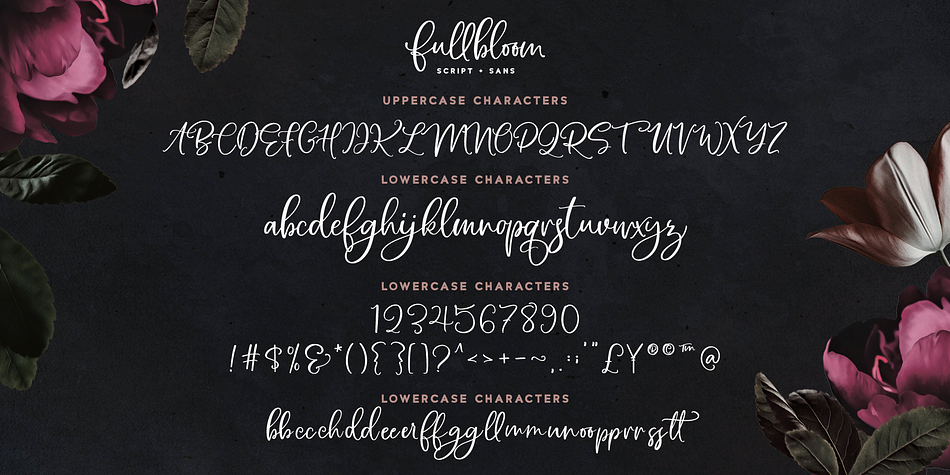 fullbloom
SCRIPT + SANS
UPPERCASE CHARACTERS
ABCDEFGHIJKLMNOPQRSTUVWXYZ
LOWERCASE CHARACTERS
abcdefghijklmnopqrstuvwxyz
LOWERCASE CHARACTERS
1234567890
!#$%&*(){}[]?^<>+-~,.:;'"£¥®©™@
LOWERCASE CHARACTERS